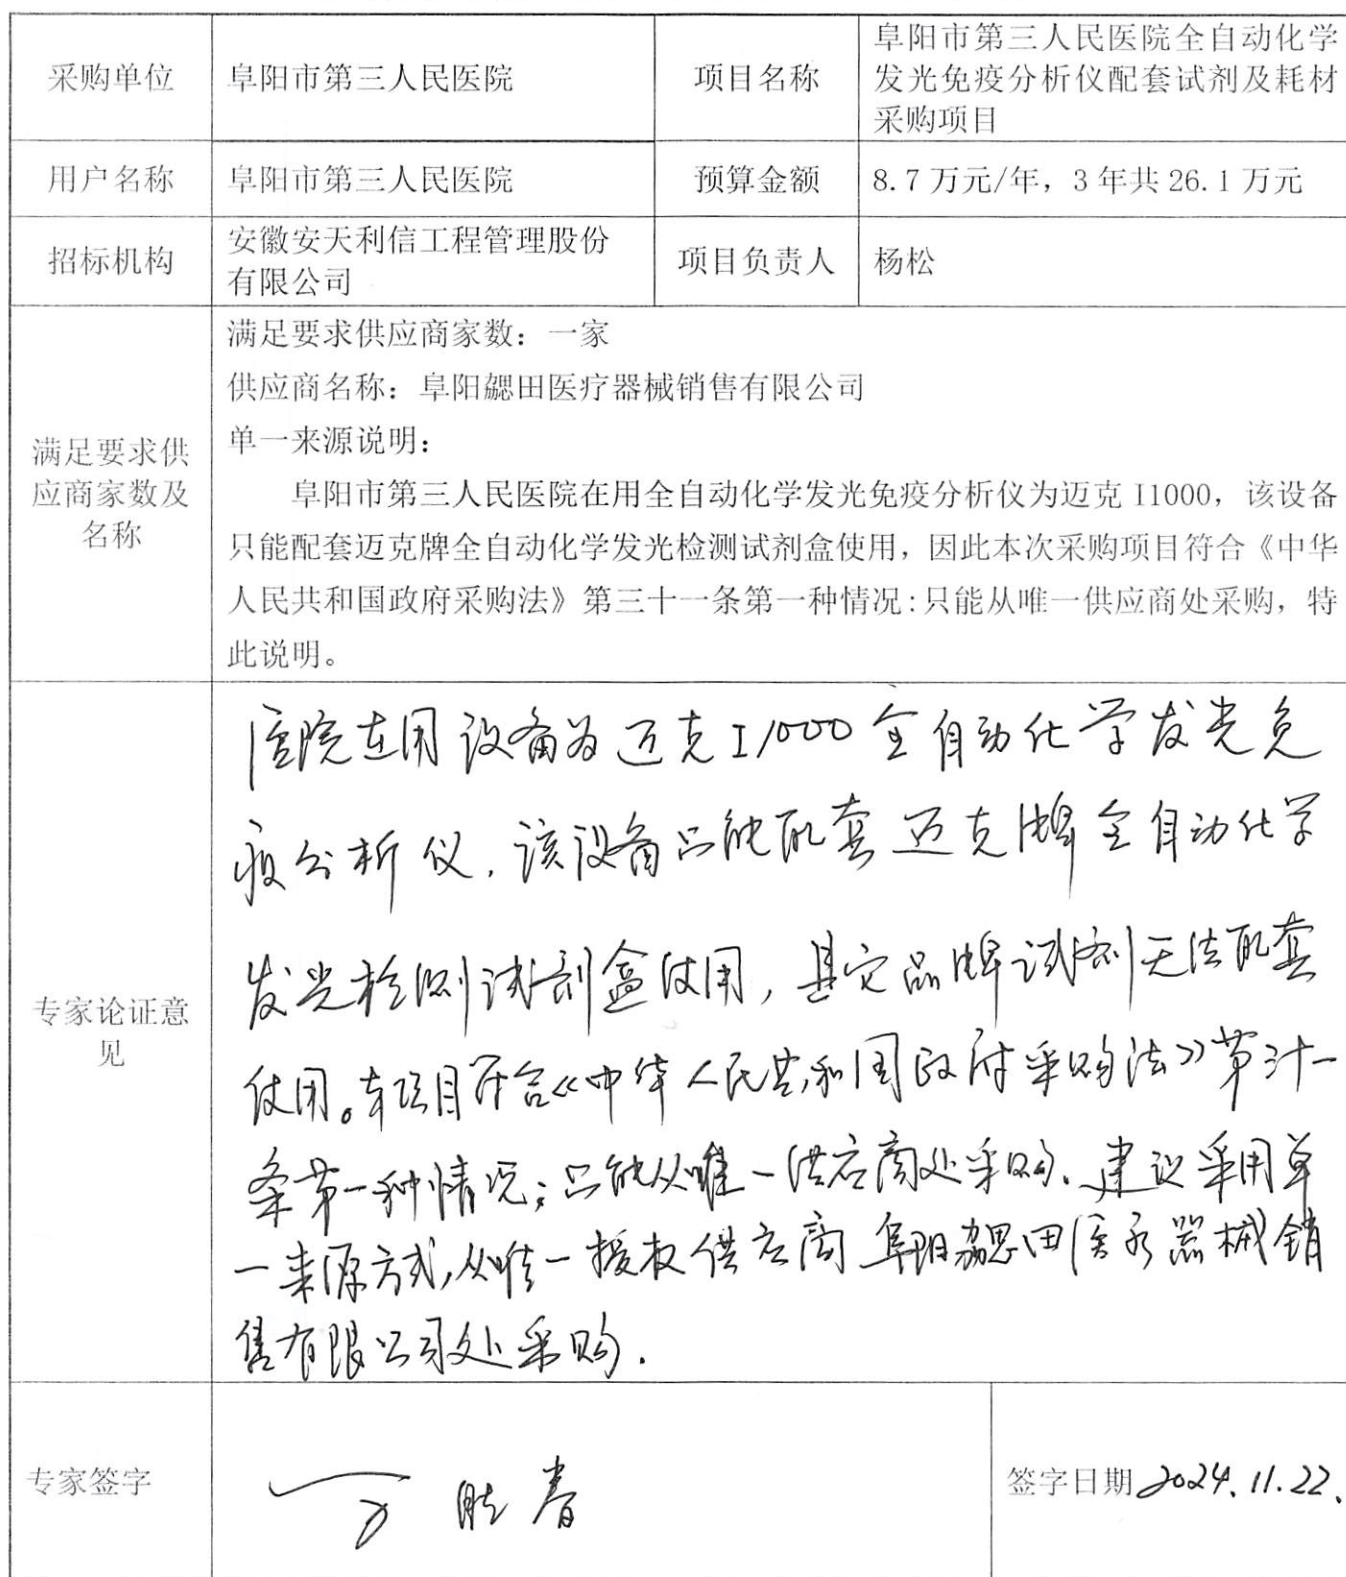 采购单位 阜阳市第三人民医院 项目名称 阜阳市第三人民医院全自动化学
发光免疫分析仪配套试剂及耗材
采购项目
用户名称 阜阳市第三人民医院 预算金额 8.7 万元/年，3 年共 26.1 万元
招标机构 安徽安天利信工程管理股份
有限公司 项目负责人 杨松
满足要求供
应商家数及
名称
满足要求供应商家数：一家
供应商名称：阜阳勰田医疗器械销售有限公司
单一来源说明：
阜阳市第三人民医院在用全自动化学发光免疫分析仪为迈克 I1000，该设备
只能配套迈克牌全自动化学发光检测试剂盒使用，因此本次采购项目符合《中华
人民共和国政府采购法》第三十一条第一种情况:只能从唯一供应商处采购，特
此说明。
专家论证意
见
医院在用设备为迈克I1000全自动化学发光免
疫分析仪，该设备只能配套迈克牌全自动化学
发光检测试剂盒使用，其它品牌试剂无法配套
使用。本项目符合《中华人民共和国政府采购法》第三十一
条第一种情况：只能从唯一供应商处采购．建议采用单
一来源方式，从唯一授权供应商阜阳勰田医疗器械销
售有限公司处采购．
专家签字 春
签字日期 2024.11.22.